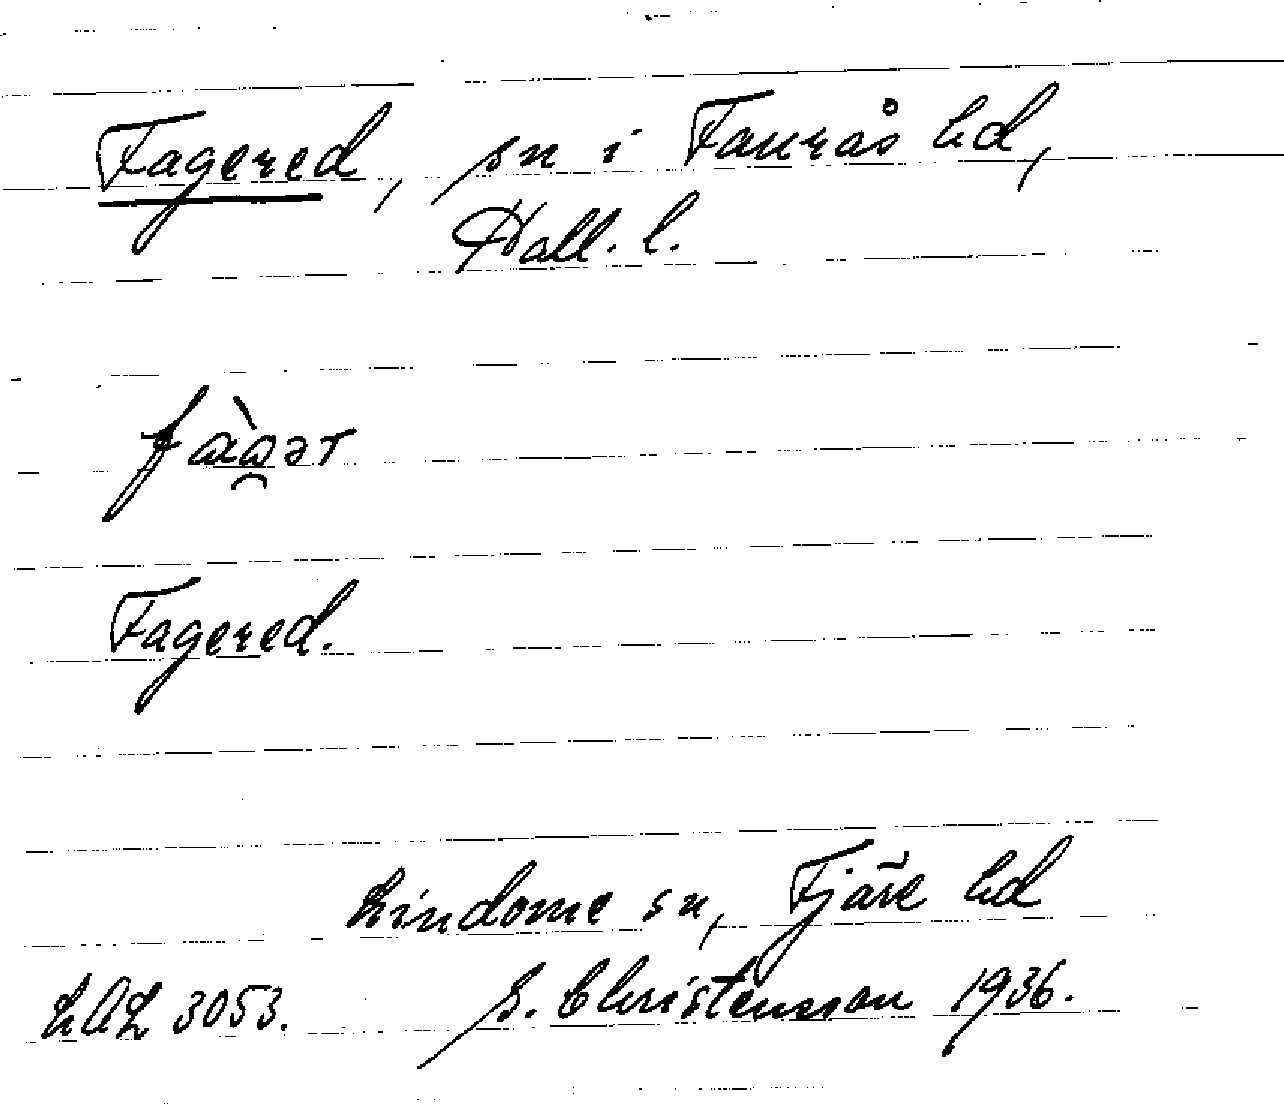 Fagered, sn i Faurås hd,
Hall. l.
Fagered.
Lindome sn, Fjäre hd
LAL 3053. S. Christensson 1936.